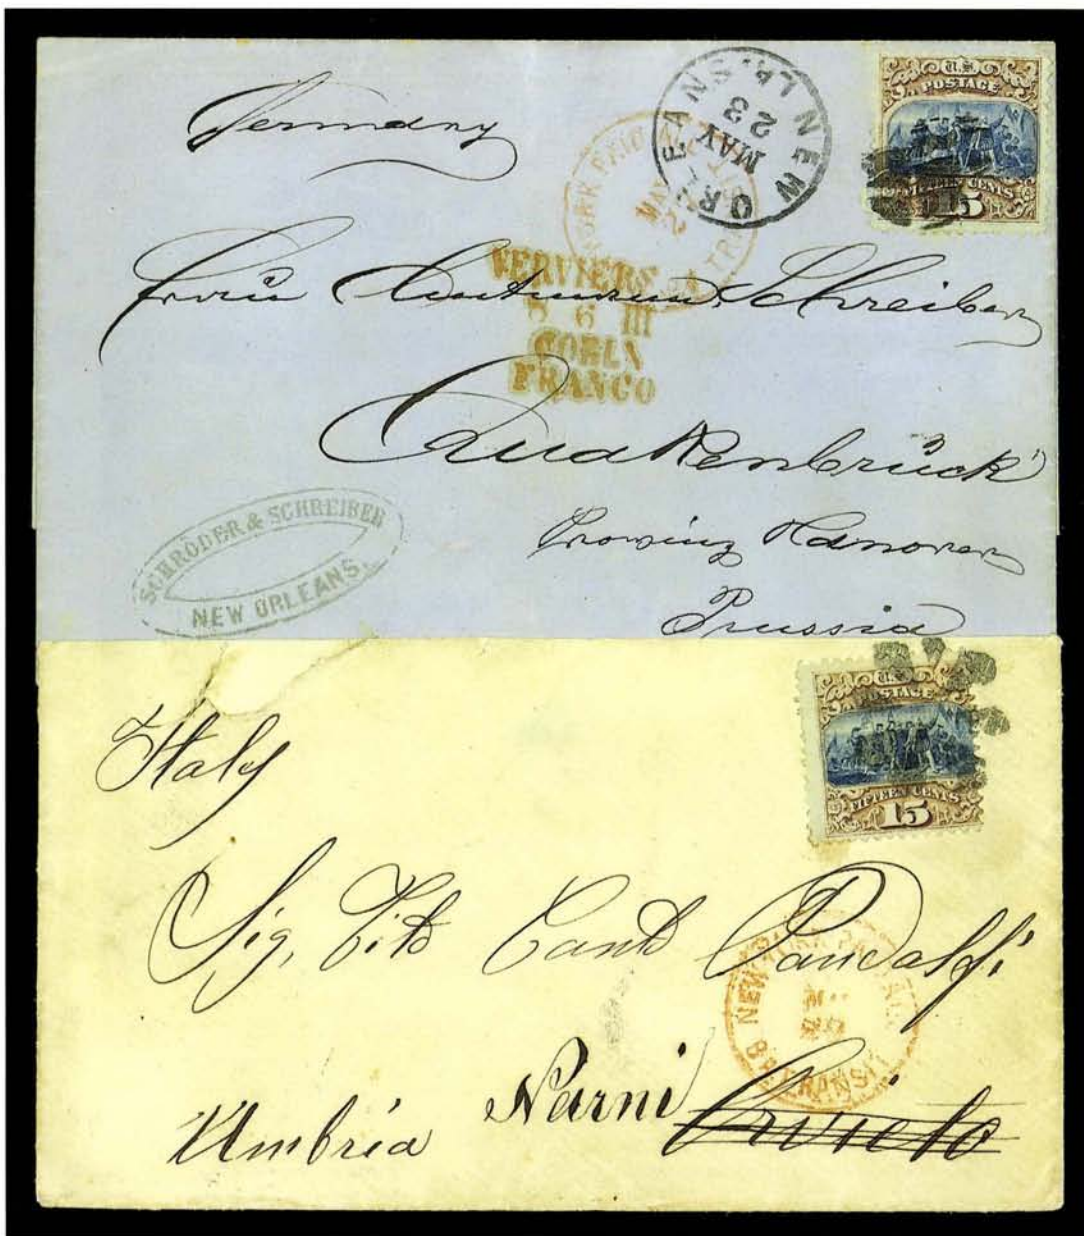 Germany
NEW ORLEANS LA.
MAY
23
U.S.
POSTAGE
FIFTEEN CENTS
15
YORK PAID
MAY
VERVIERS
6 III
COELN
FRANCO
Frau Amtmann Schreiber
Quakenbrück
Provinz Hanover
Prussia
SCHRODER & SCHREIBER
NEW ORLEANS.
U.S.
POSTAGE
FIFTEEN CENTS
15
Italy
Sig. Tito Pandolfi
NEW YORK
BR. TRANSIT
Narni
Orvieto
Umbria